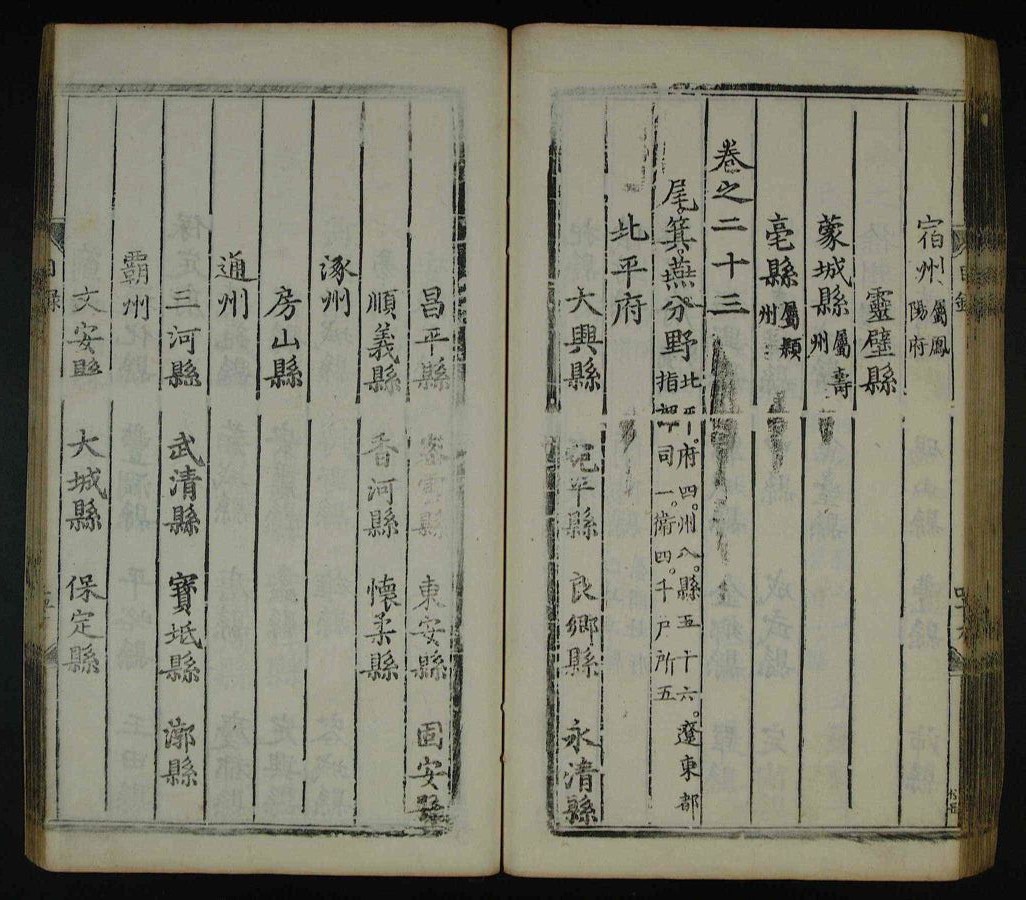 宿州屬鳳陽府
靈璧縣
蒙城縣屬壽州
亳縣屬潁州
卷之二十三
尾箕燕分野北平府四州八縣五十六遼東都指揮司一衛四千戶所五
北平府
大興縣 宛平縣 良鄉縣 永清縣
昌平縣 密雲縣 東安縣 固安縣
順義縣 香河縣 懷柔縣
涿州
房山縣
通州
三河縣 武清縣 寶坻縣 漷縣
霸州
文安縣 大城縣 保定縣
目錄